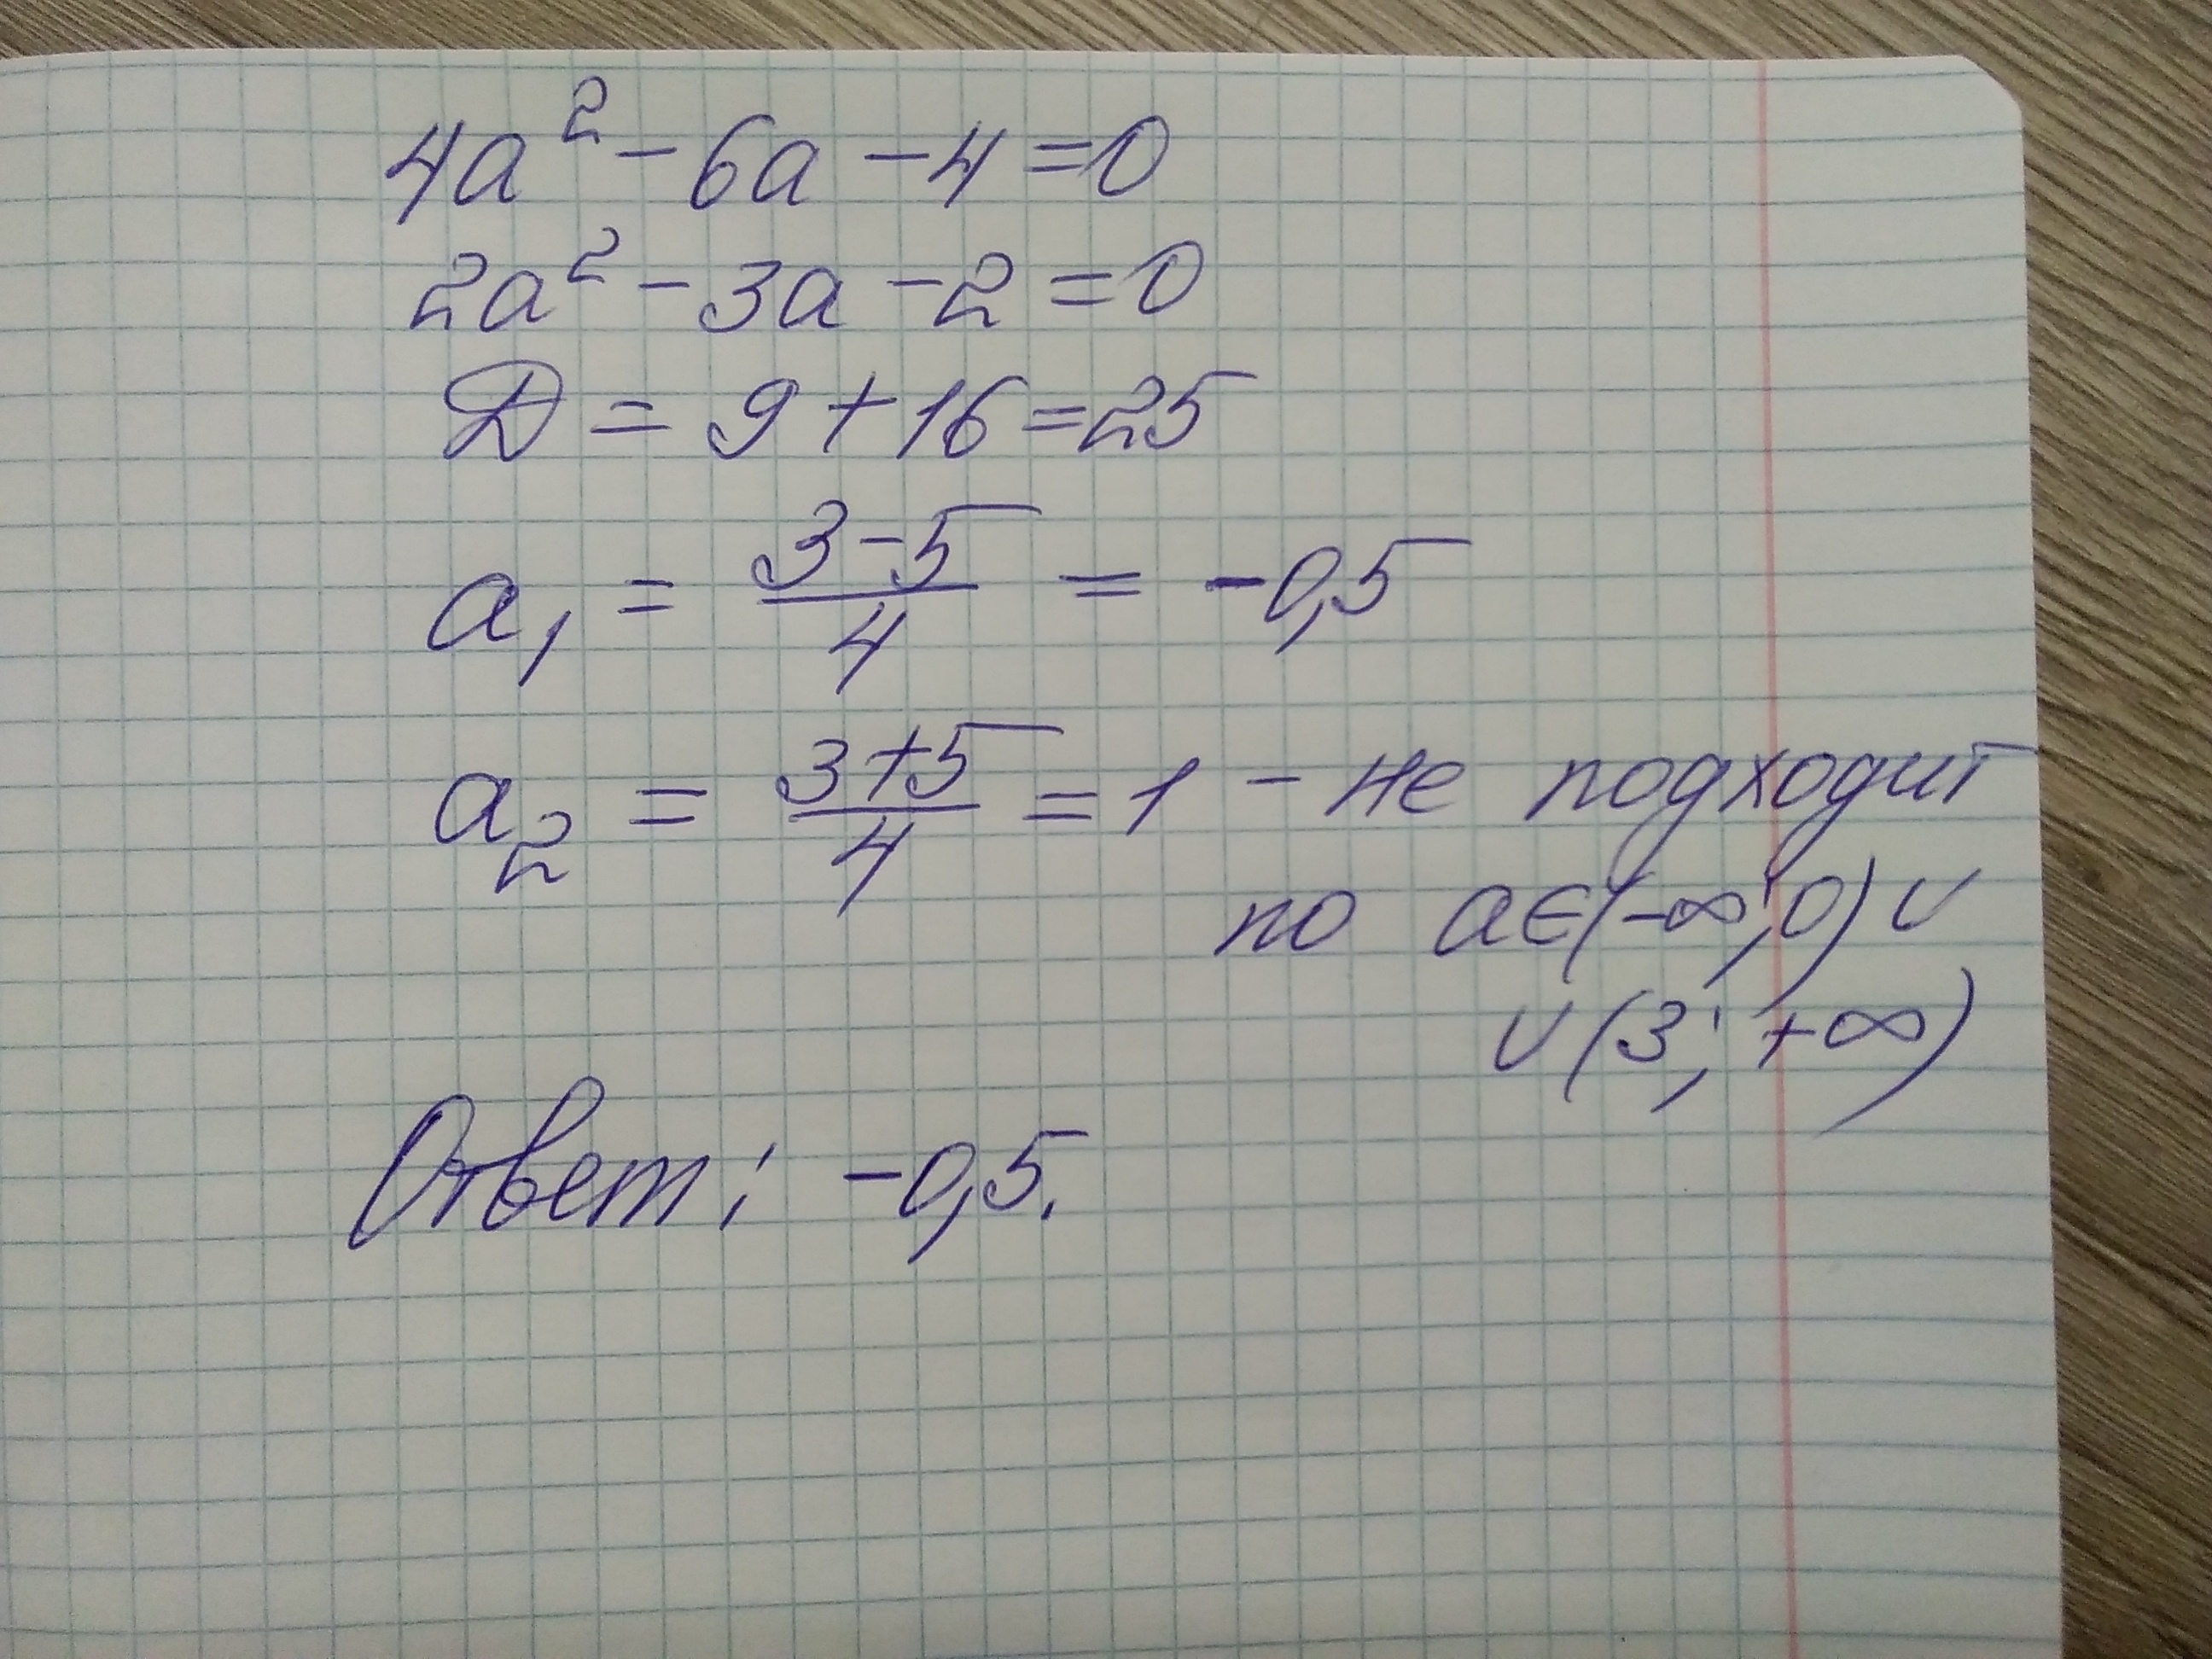 4a² - 6a - 4 = 0
2a² - 3a - 2 = 0
D = 9 + 16 = 25
a₁ = (3-5)/4 = -0,5
a₂ = (3+5)/4 = 1 - не подходит
по a∈(-∞; 0) ∪
∪ (3; +∞)
Ответ: -0,5.